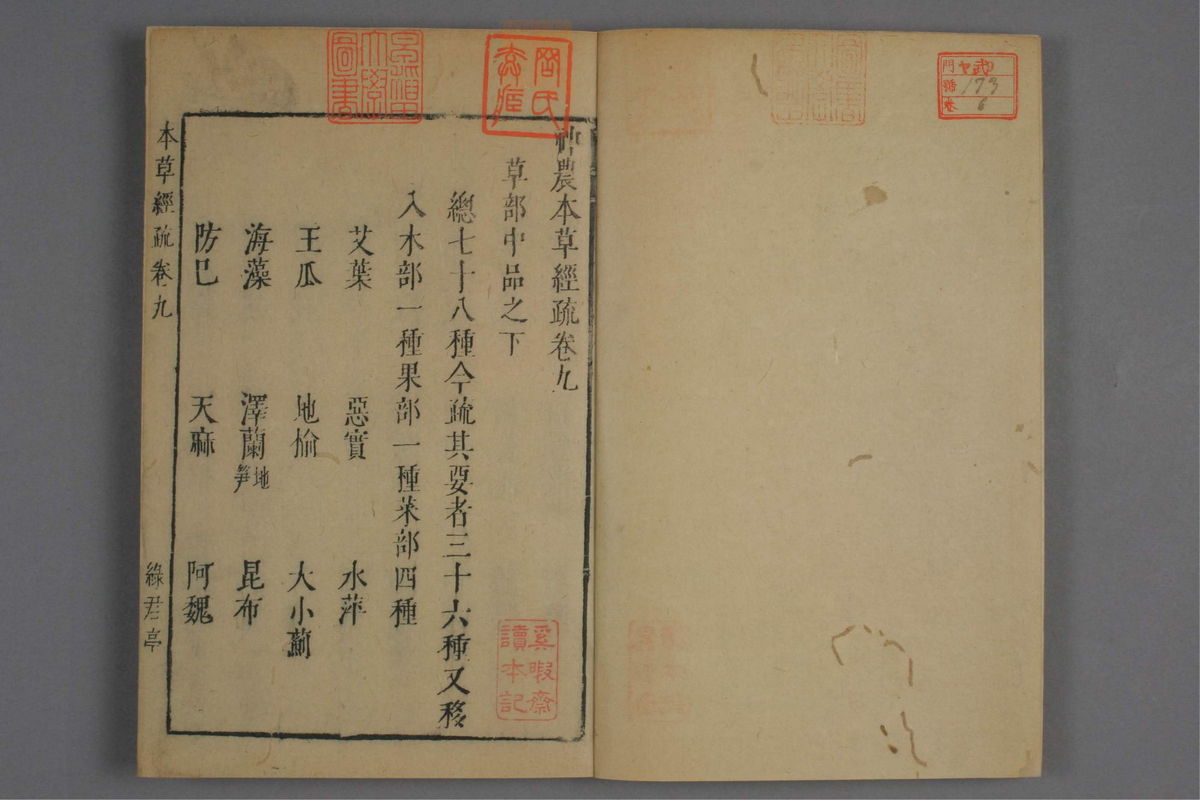 門 ヤ武
號 173
卷 6
神農本草經疏卷九
草部中品之下
總七十八種今疏其要者三十六種又移
入木部一種果部一種菜部四種
艾葉 惡實 水萍
王瓜 地榆 大小薊
海藻 澤蘭地笋 昆布
防巳 天麻 阿魏
本草經疏卷九 綠君亭
奚暇齋
讀本記
早稲田
大學
圖書